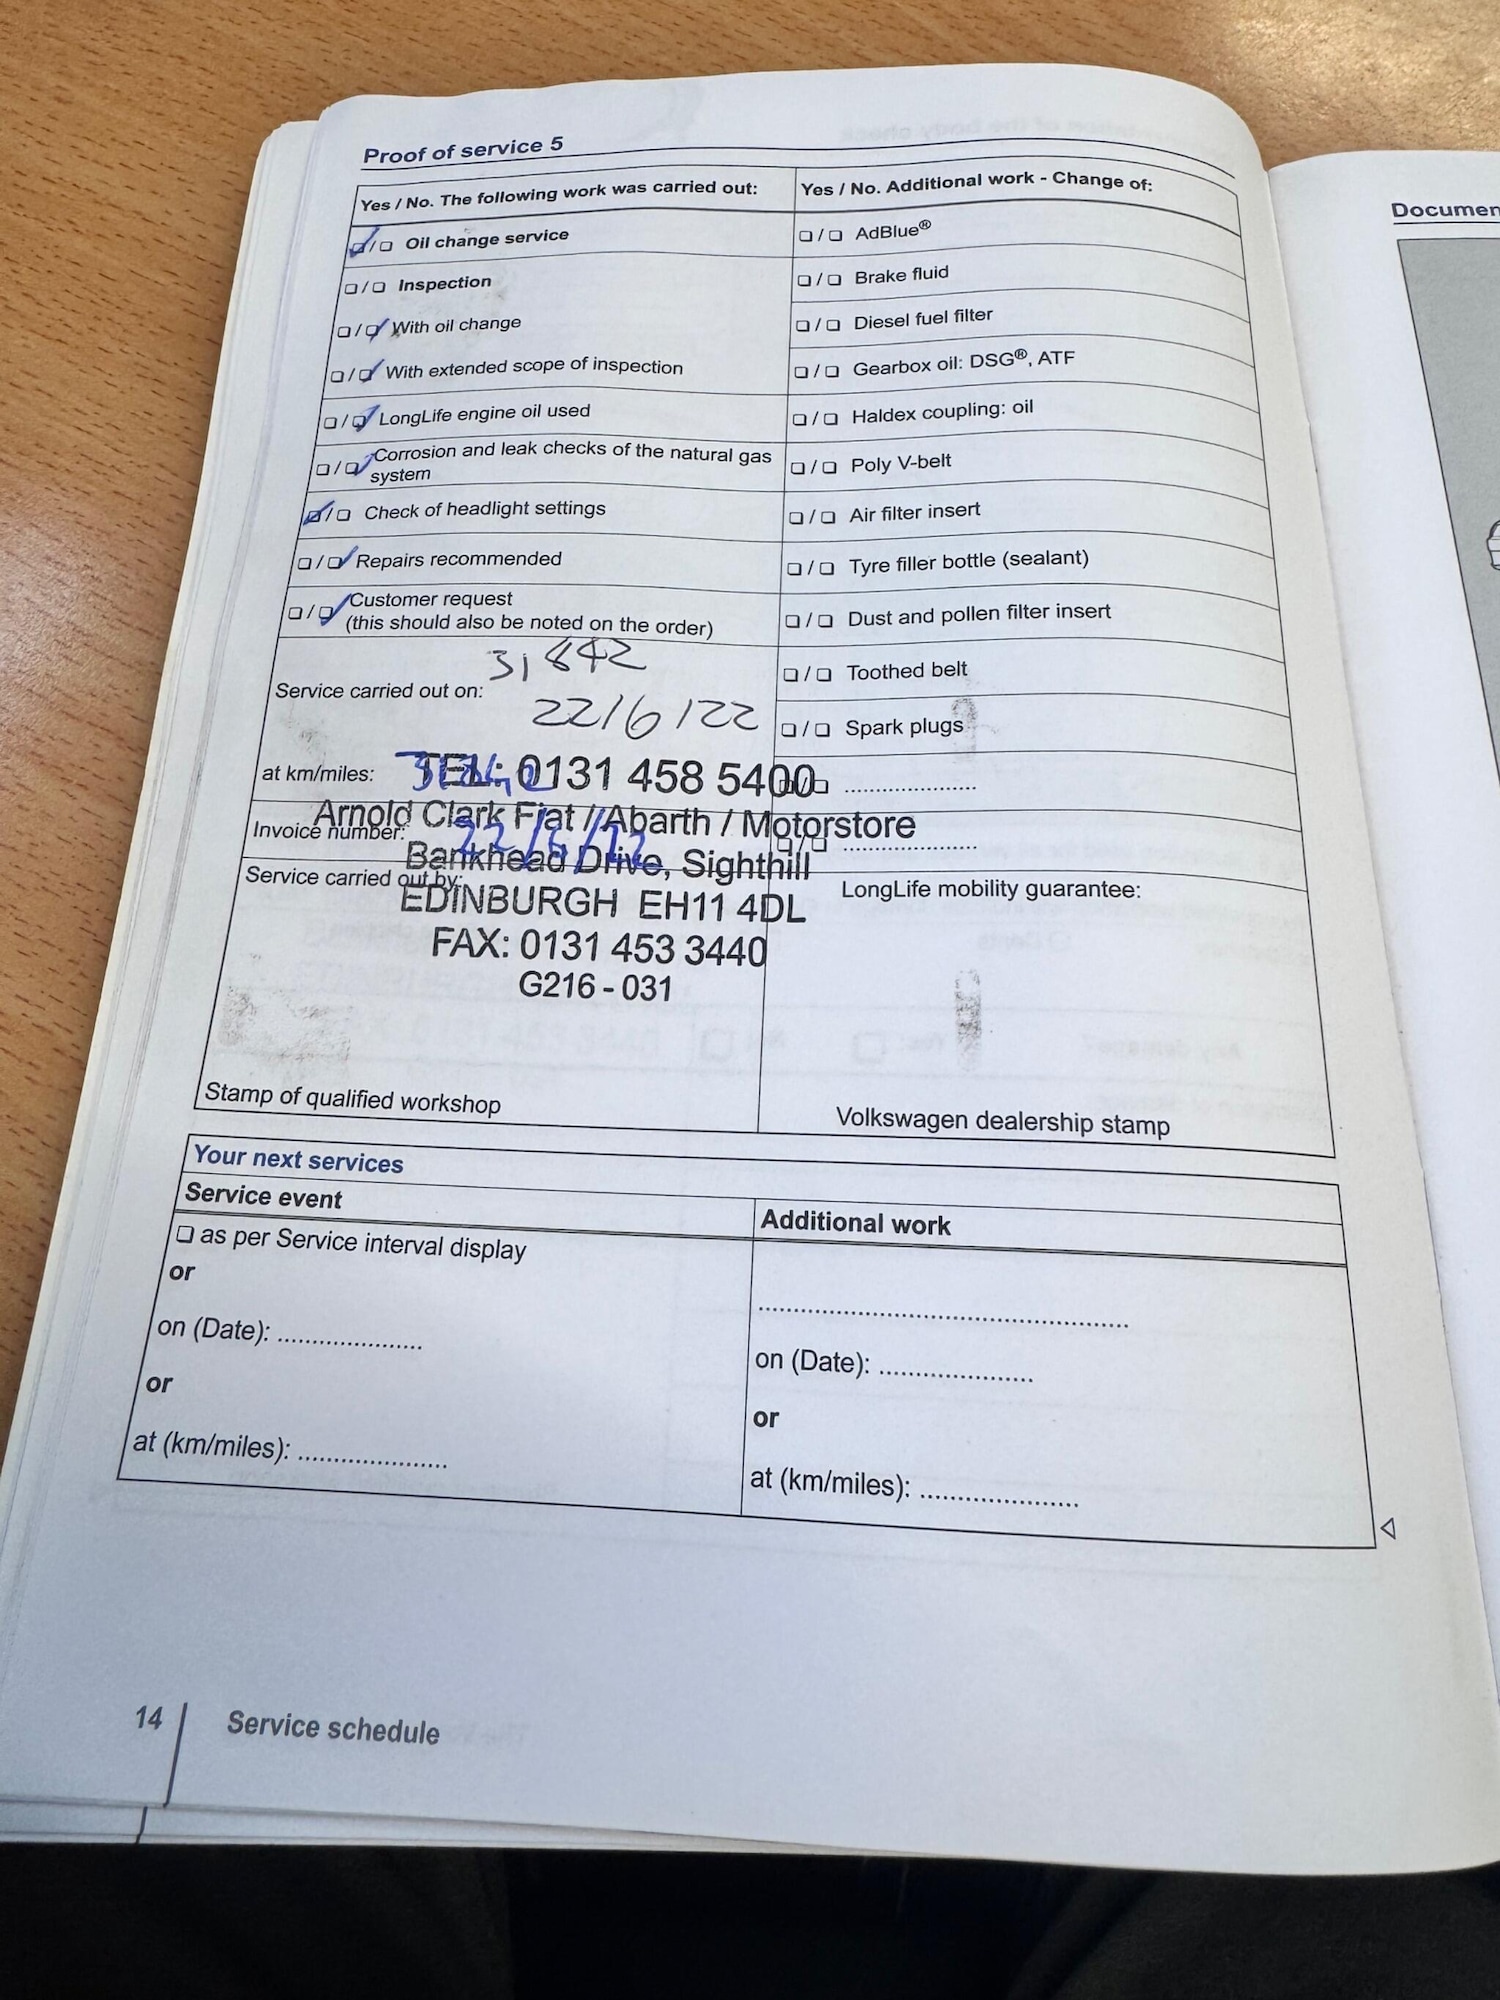 Proof of service 5
Yes / No. The following work was carried out:
☑/☐ Oil change service
☐/☐ Inspection
☐/☑ With oil change
☐/☑ With extended scope of inspection
☐/☑ LongLife engine oil used
☐/☑ Corrosion and leak checks of the natural gas
system
☑/☐ Check of headlight settings
☐/☑ Repairs recommended
☐/☑ Customer request
(this should also be noted on the order)
31842
Service carried out on:
22/6/22
at km/miles: 31842
TEL: 0131 458 5400
Arnold Clark Fiat / Abarth / Motorstore
Invoice number: 22/6/22
Bankhead Drive, Sighthill
Service carried out by:
EDINBURGH EH11 4DL
FAX: 0131 453 3440
G216 - 031
Stamp of qualified workshop
Yes / No. Additional work - Change of:
☐/☐ AdBlue®
☐/☐ Brake fluid
☐/☐ Diesel fuel filter
☐/☐ Gearbox oil: DSG®, ATF
☐/☐ Haldex coupling: oil
☐/☐ Poly V-belt
☐/☐ Air filter insert
☐/☐ Tyre filler bottle (sealant)
☐/☐ Dust and pollen filter insert
☐/☐ Toothed belt
☐/☐ Spark plugs
☐/☐ ......................
☐/☐ ......................
LongLife mobility guarantee:
Volkswagen dealership stamp
Your next services
Service event
☐ as per Service interval display
or
on (Date): ......................
or
at (km/miles): ......................
Additional work
......................................................
on (Date): ......................
or
at (km/miles): ......................
14
Service schedule